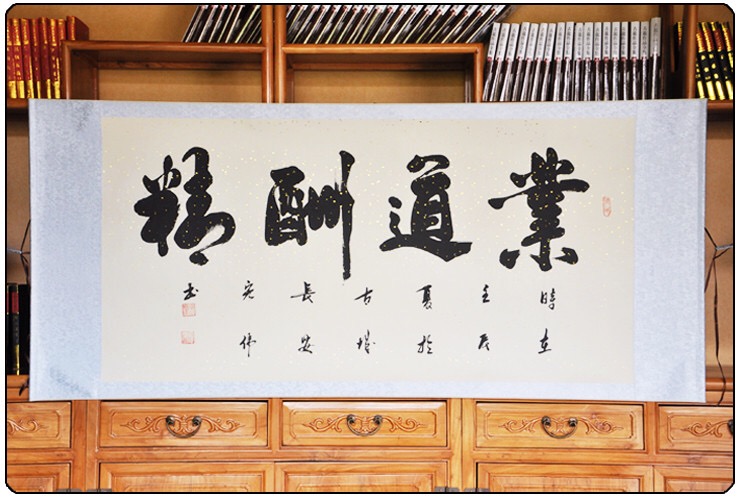 業道酬精
時在壬辰夏於古城長安宏伟书